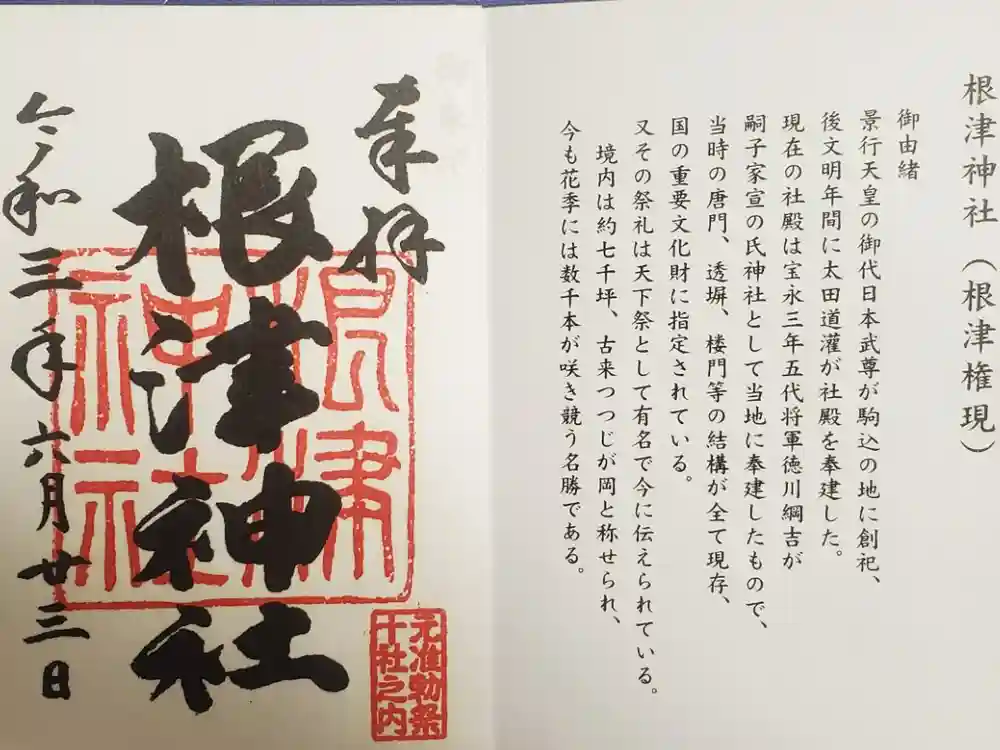 根津神社（根津権現）
御由緒
景行天皇の御代日本武尊が駒込の地に創祀、
後文明年間に太田道灌が社殿を奉建した。
現在の社殿は宝永三年五代将軍徳川綱吉が
嗣子家宣の氏神社として当地に奉建したもので、
当時の唐門、透塀、楼門等の結構が全て現存、
国の重要文化財に指定されている。
又その祭礼は天下祭として有名で今に伝えられている。
境内は約七千坪、古来つつじが岡と称せられ、
今も花季には数千本が咲き競う名勝である。
奉拝
根津神社
令和三年六月廿三日
根津
神社
元准勅祭
十社之内